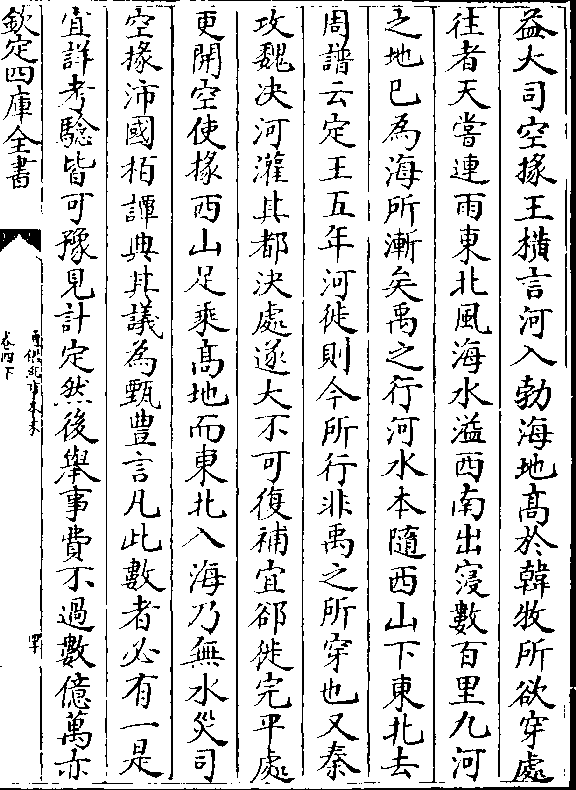 益大司空掾王横言河入勃海地髙於韓牧所欲穿處
往者天嘗連雨東北風海水溢西南出寖數百里九河
之地已為海所漸矣禹之行河水本隨西山下東北去
周譜云定王五年河徙則今所行非禹之所穿也又秦
攻魏决河灌其都决處遂大不可復補宜郤徙完平處
更開空使掾西山足乗髙地而東北入海乃無水災司
空掾沛國栢譚典其議為甄豐言凡此數者必有一是
宜詳考驗皆可豫見計定然後舉事費不過數億萬亦
欽定四庫全書
卷四下